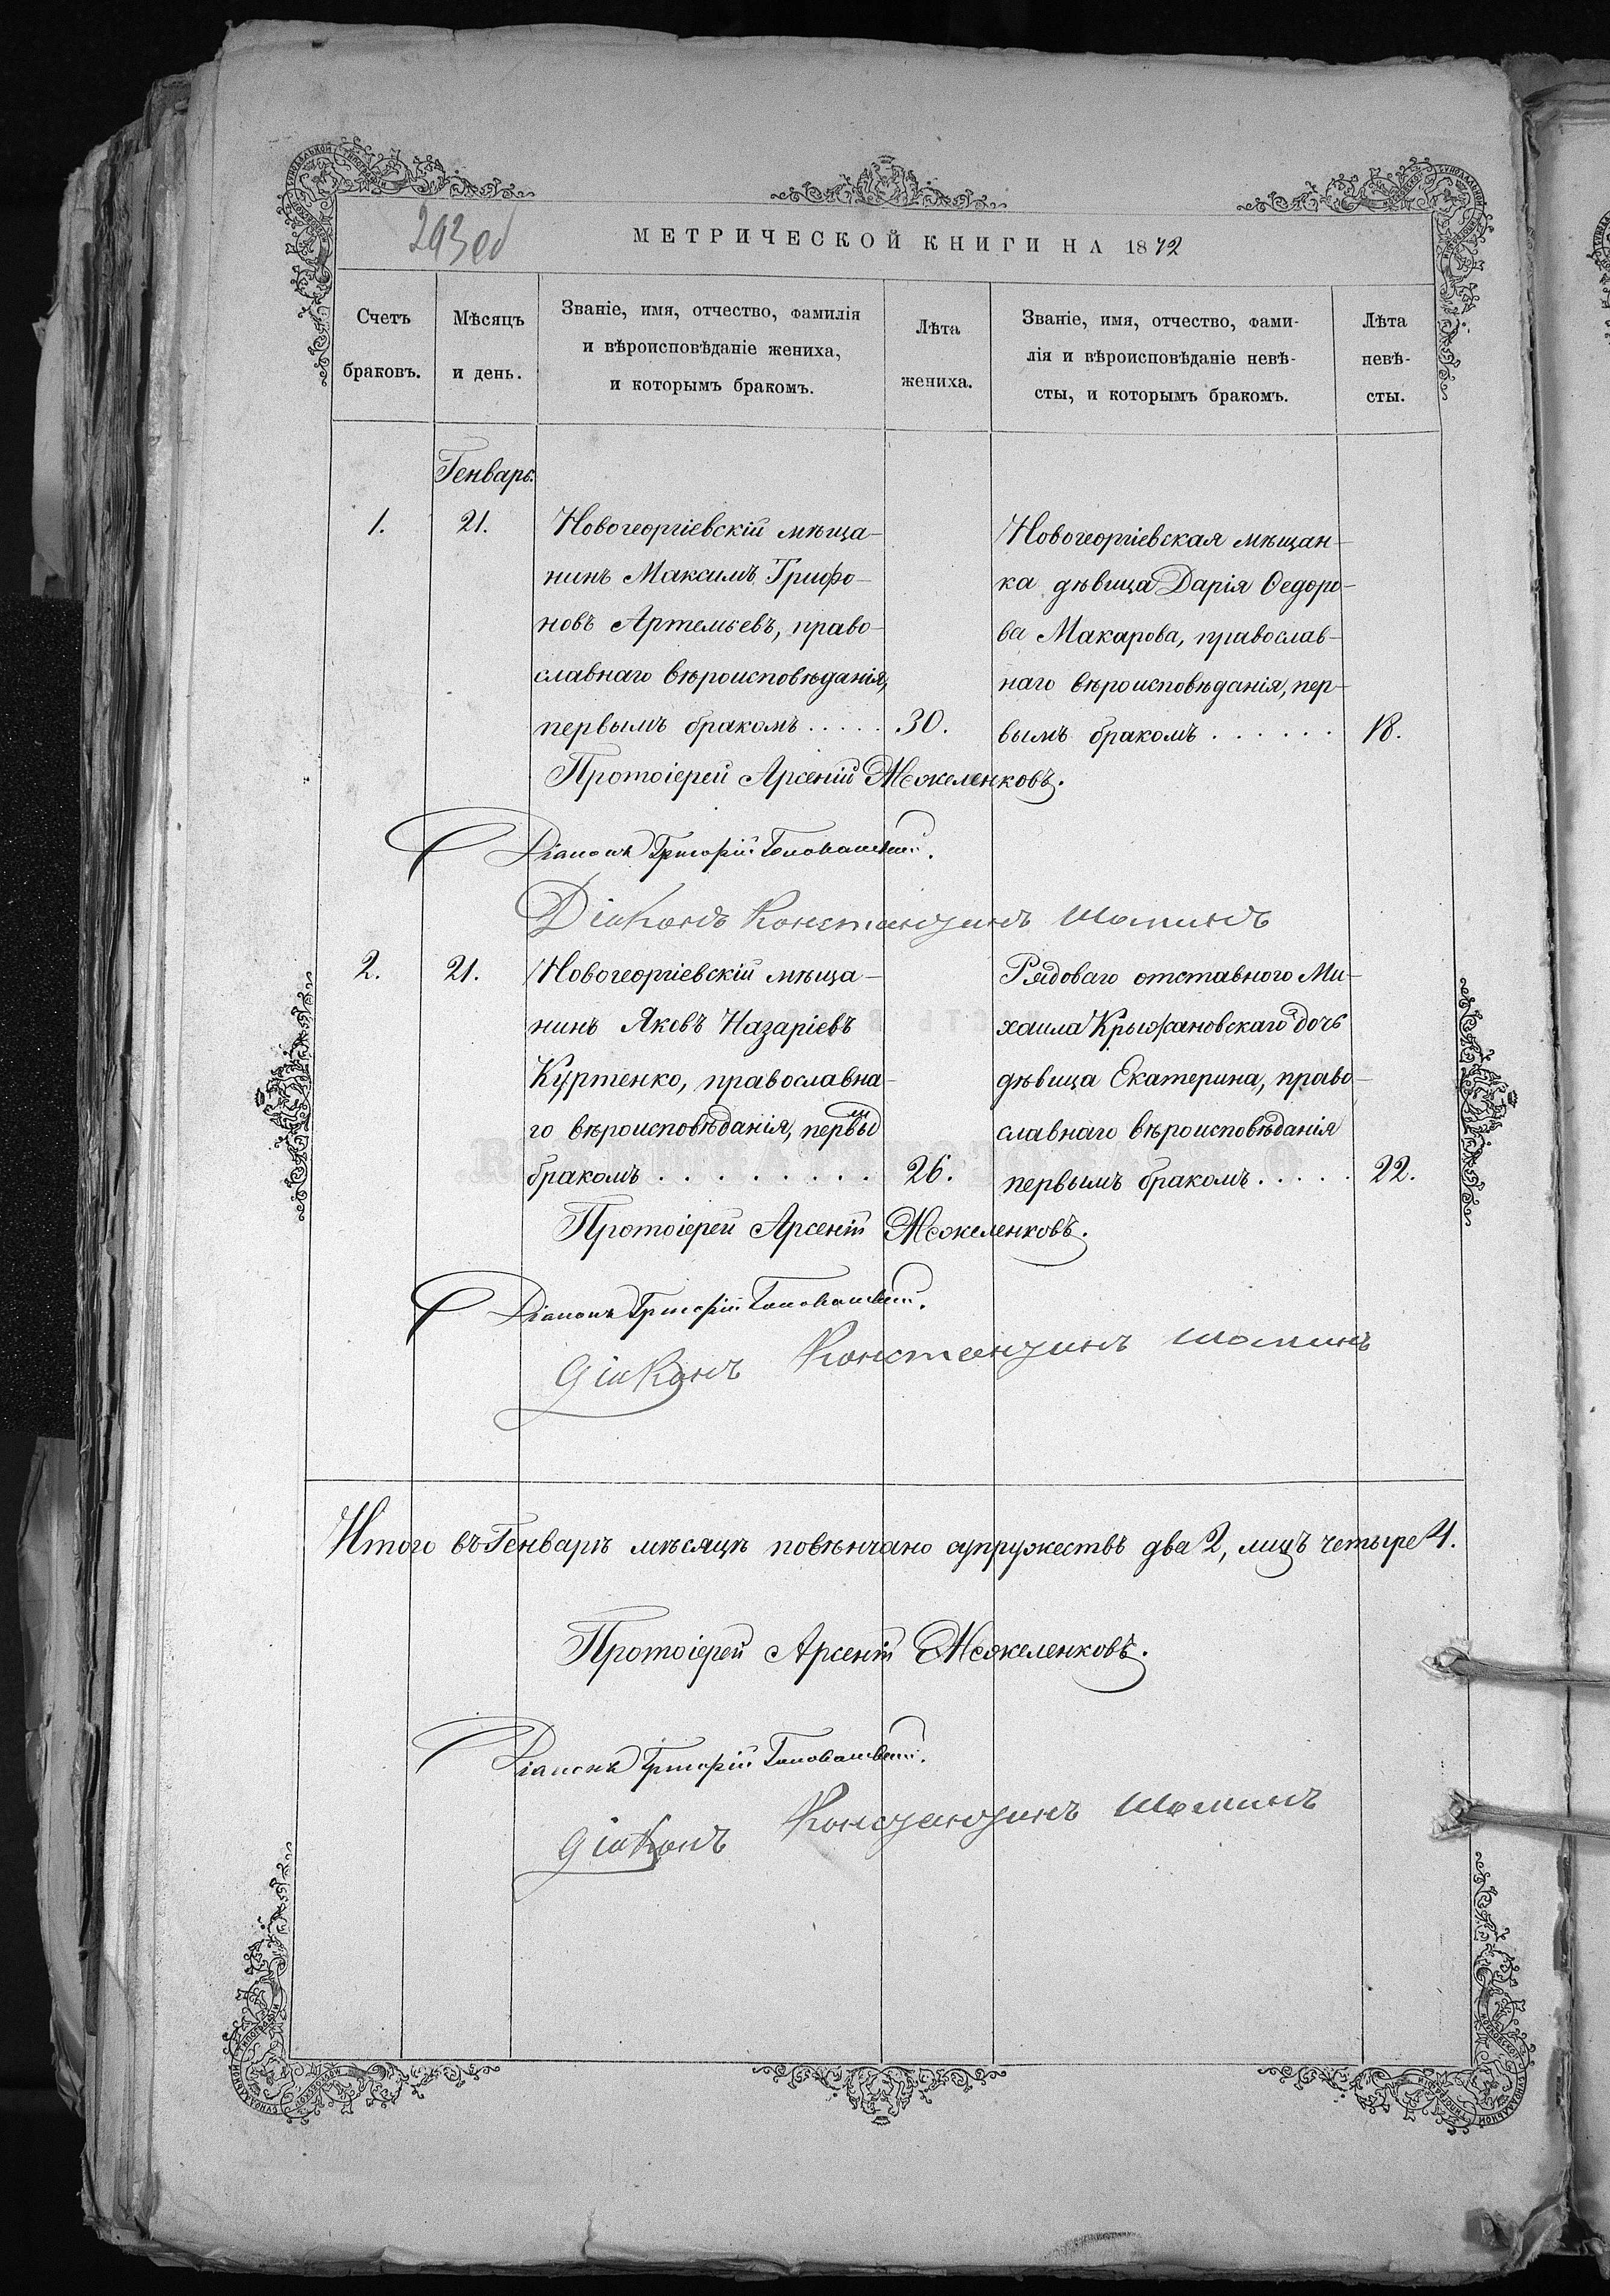 293 об
МЕТРИЧЕСКОЙ КНИГИ НА 1872
Счетъ
браковъ.
Мѣсяцъ
и день.
Званіе, имя, отчество, фамилія
и вѣроисповѣданіе жениха,
и которымъ бракомъ.
Лѣта
жениха.
Званіе, имя, отчество, фами-
лія и вѣроисповѣданіе невѣ-
сты, и которымъ бракомъ.
Лѣта
невѣ-
сты.
Генварь.
1.
21.
Новогеоргіевскій мѣща-
нинъ Максимъ Трифо-
новъ Артемьевъ, право-
славнаго вѣроисповѣданія,
первымъ бракомъ . . . . .
30.
Новогеоргіевская мѣщан-
ка дѣвица Дарія Ѳедоро-
ва Макарова, православ-
наго вѣроисповѣданія, пер-
вымъ бракомъ . . . . . .
18.
Протоіерей Арсеній Межеленковъ.
Діаконъ Григорій
Діаконъ Константинъ Шоминъ
2.
21.
Новогеоргіевскій мѣща-
нинъ Яковъ Назаріевъ
Куртенко, православна-
го вѣроисповѣданія, первым
бракомъ . . . . . . . .
26.
Рядоваго отставного Ми-
хаила Крыжановскаго дочь
дѣвица Екатерина, право-
славнаго вѣроисповѣданія
первымъ бракомъ . . . . .
22.
Протоіерей Арсеній Межеленковъ.
Діаконъ Григорій
Діаконъ Константинъ Шоминъ
Итого въ Генварѣ мѣсяцѣ повѣнчано супружествъ два 2, лицъ четыре 4.
Протоіерей Арсеній Межеленковъ.
Діаконъ Григорій
Діаконъ Константинъ Шоминъ